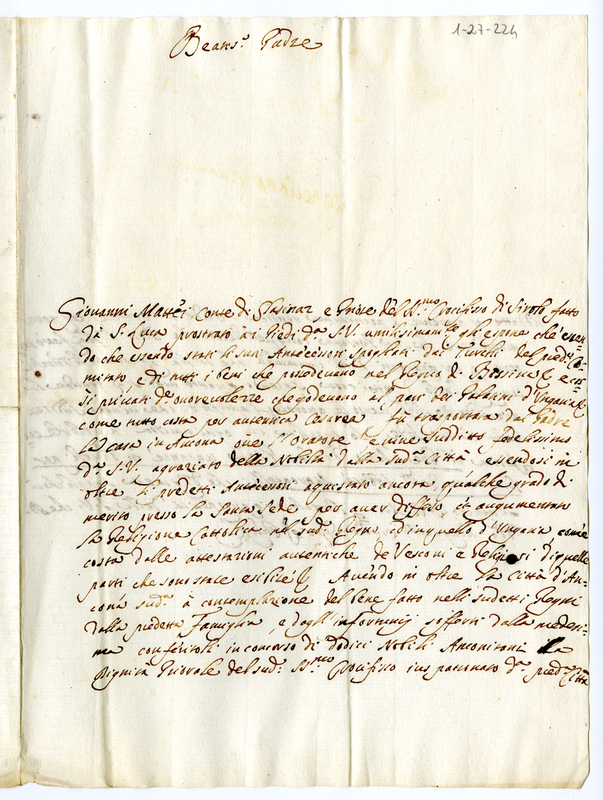 1-27-224
Beatis.o Padre
Giovanni Mattei Conte di e Priore dell S.mo Crocifisso di Sirolo fatto
da S. Luca prostrato a i Piedi d.a S.V. umilissimam.te gli espone che essen-
do che essendo stati li suoi Antecessori spogliati dai Turchi del pred.o Co-
mitato, e di tutti i beni che possedevano nel Regno di Bossina & e co-
si privati d. onorevolezze che godevano al pari dei Palatini d'Ungaria &
come tutto costa per autentica Cesarea fù trasportata dai Padre
la casa in Ancona ove l'Oratore e vive suddito fedelissimo
d.a S.V. agraziato della Nobiltà dalla sud.a Città essendosi in
oltre li predetti Antecessori aquistato ancora qualche grado di
merito presso la Santa Sede per aver diffeso, ed augumentato
la Religione Cattolica nel sud.o Regno, ed in quello d'Ungaria come
costa dalle attestazioni autentiche de Vescovi e Religiosi di quelle
parti che sono state esibite & Avendo in oltre la Città d'An-
cona sud.a à contemplazione del bene fatto nelli sudetti Regni
dalla predetta Famiglia, e dagl' infortunij sofferti dalla medesi-
ma conferitoli in concorso di dodici Nobili Anconitani la
Dignità Priorale del sud.o S.mo Crocifisso ius patronato d.a pred.a Città